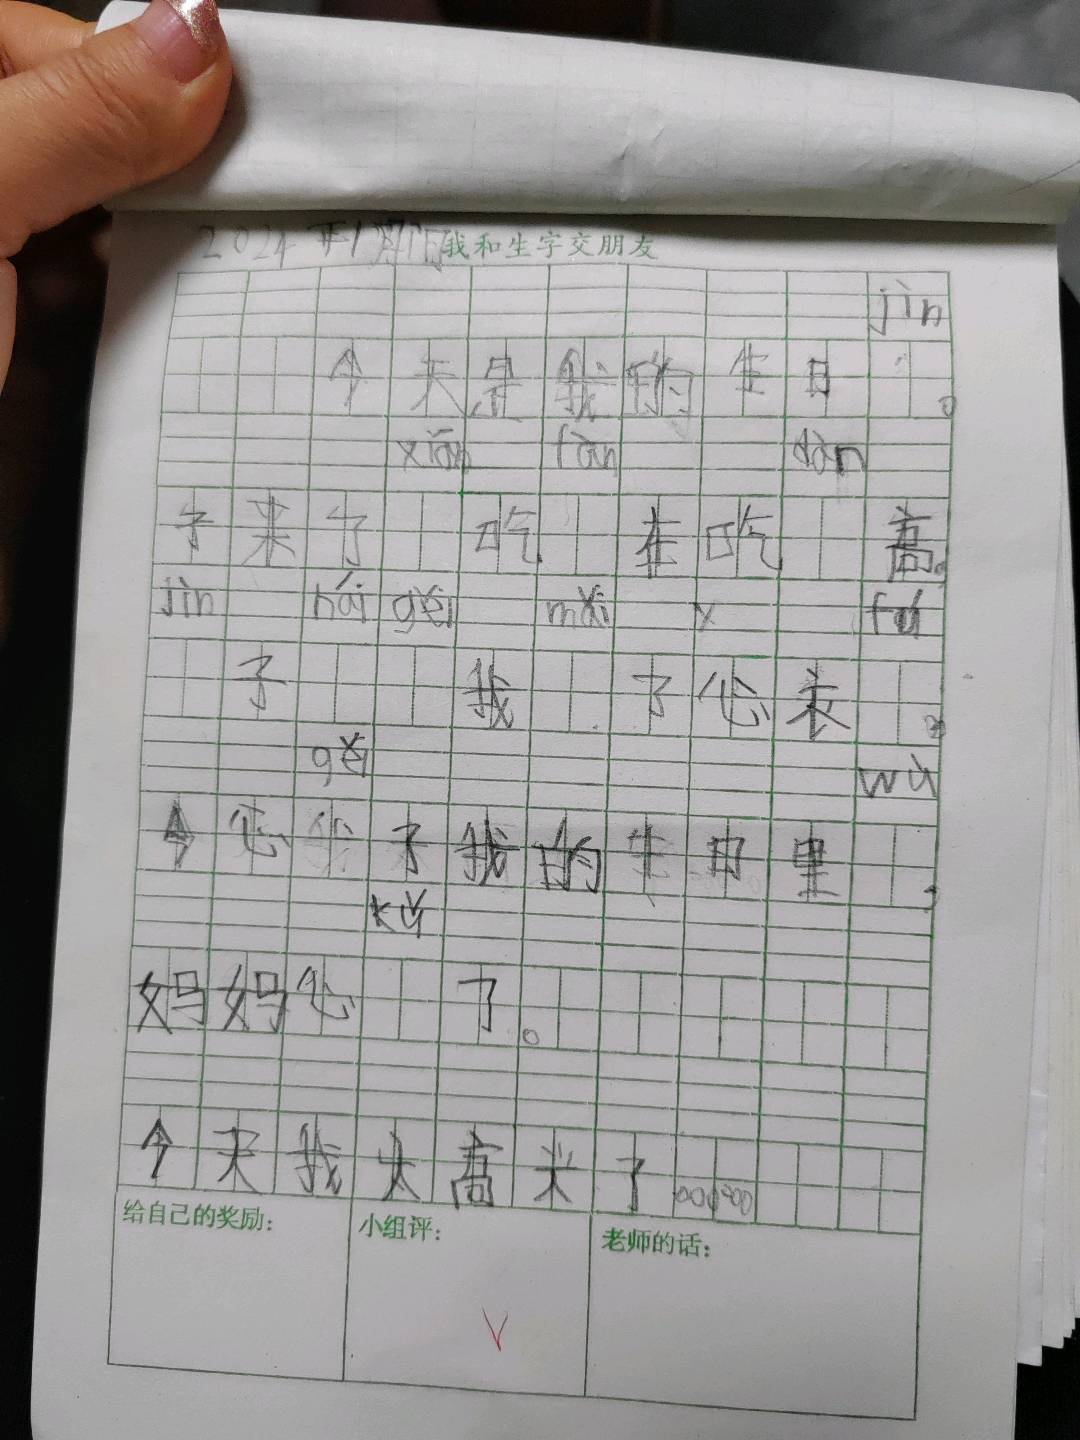 2024年1月 我和生字交朋友
jìn
今天是我的生日。
xiān fàn dàn
子来了 吃 在吃 高。
jìn nǎi gěi mǎi y fú
子 我 了 衣 。
gěi wù
今 了我的生日里 ,
kū
妈妈 了。
今天我太高兴了。。。。。。
给自己的奖励：
小组评：
老师的话：